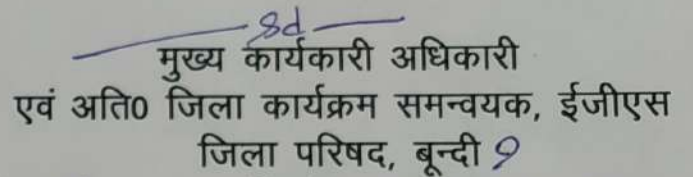 Sd
मुख्य कार्यकारी अधिकारी
एवं अति0 जिला कार्यक्रम समन्वयक, ईजीएस
जिला परिषद, बून्दी